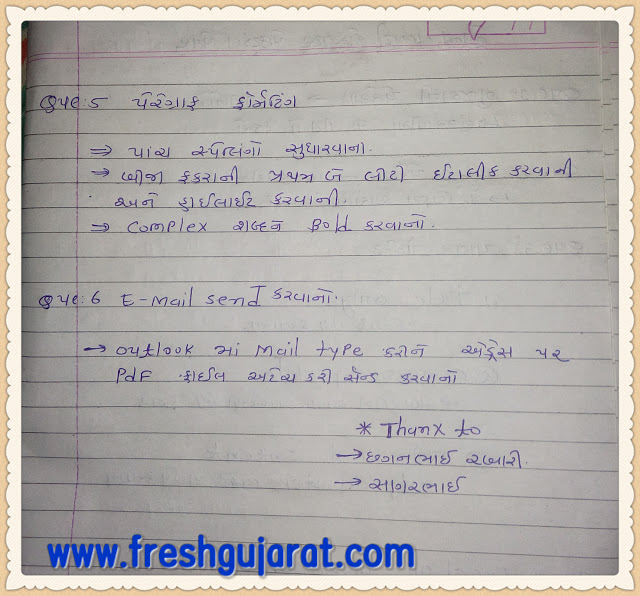 પ્રશ્ન:5 પેરેગ્રાફ ફોર્મેટિંગ
⇒ પાંચ સ્પેલિંગો સુધારવાના.
→ બીજા ફકરાની પ્રથમ બે લીટી ઈટાલીક કરવાની
અને હાઈલાઈટ કરવાની.
⇒ Complex શબ્દને Bold કરવાનો.
પ્રશ્ન:6 E-mail send કરવાનો.
→ outlook માં mail type કરીને એડ્રેસ પર
Pdf ફાઈલ અટેચ કરી સેન્ડ કરવાનો
* Thanx to
→ છગનભાઈ રબારી.
→ સાગરભાઈ
www.freshgujarat.com